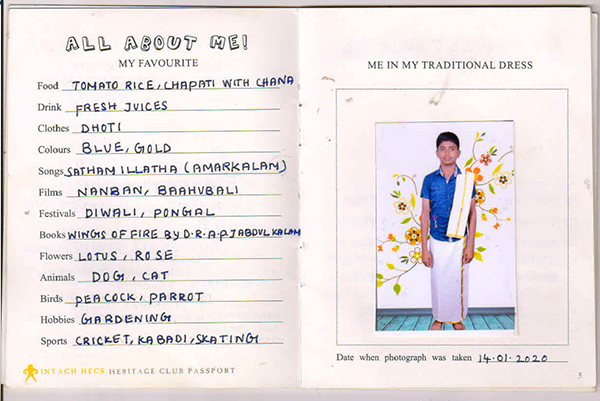 ALL ABOUT ME!
MY FAVOURITE
Food TOMATO RICE, CHAPATI WITH CHANA
Drink FRESH JUICES
Clothes DHOTI
Colours BLUE, GOLD
Songs SATHAM ILLATHA (AMARKALAM)
Films NANBAN, BAAHUBALI
Festivals DIWALI, PONGAL
Books WINGS OF FIRE BY D.R.A.P.J ABDUL KALAM
Flowers LOTUS, ROSE
Animals DOG, CAT
Birds PEACOCK, PARROT
Hobbies GARDENING
Sports CRICKET, KABADI, SKATING
INTACH HECS HERITAGE CLUB PASSPORT
ME IN MY TRADITIONAL DRESS
Date when photograph was taken 14.01.2020
5